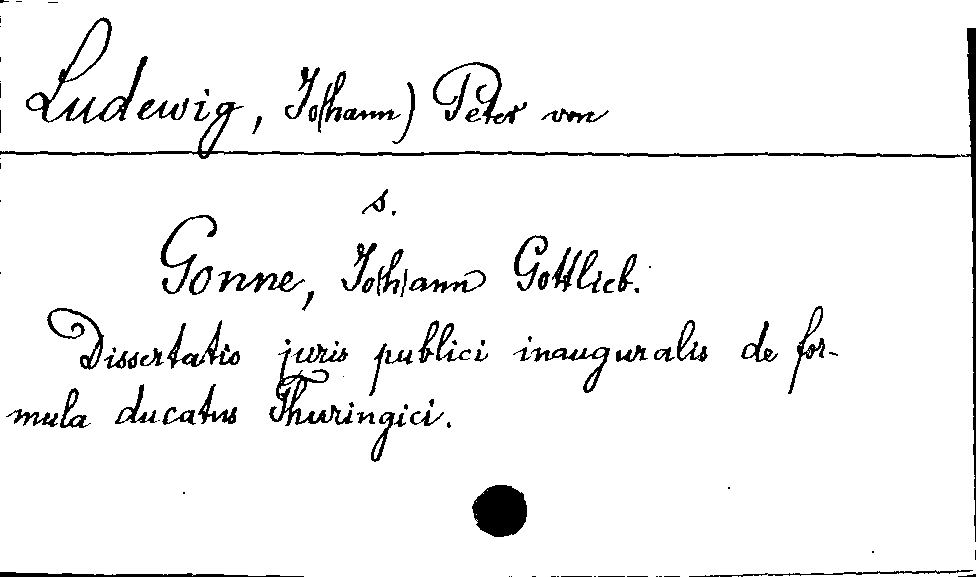 Ludewig, Jo(hann) Peter von
s.
Gonne, Jo(h)ann Gottlieb.
Dissertatio juris publici inauguralis de for-
mula ducatus Thuringici.